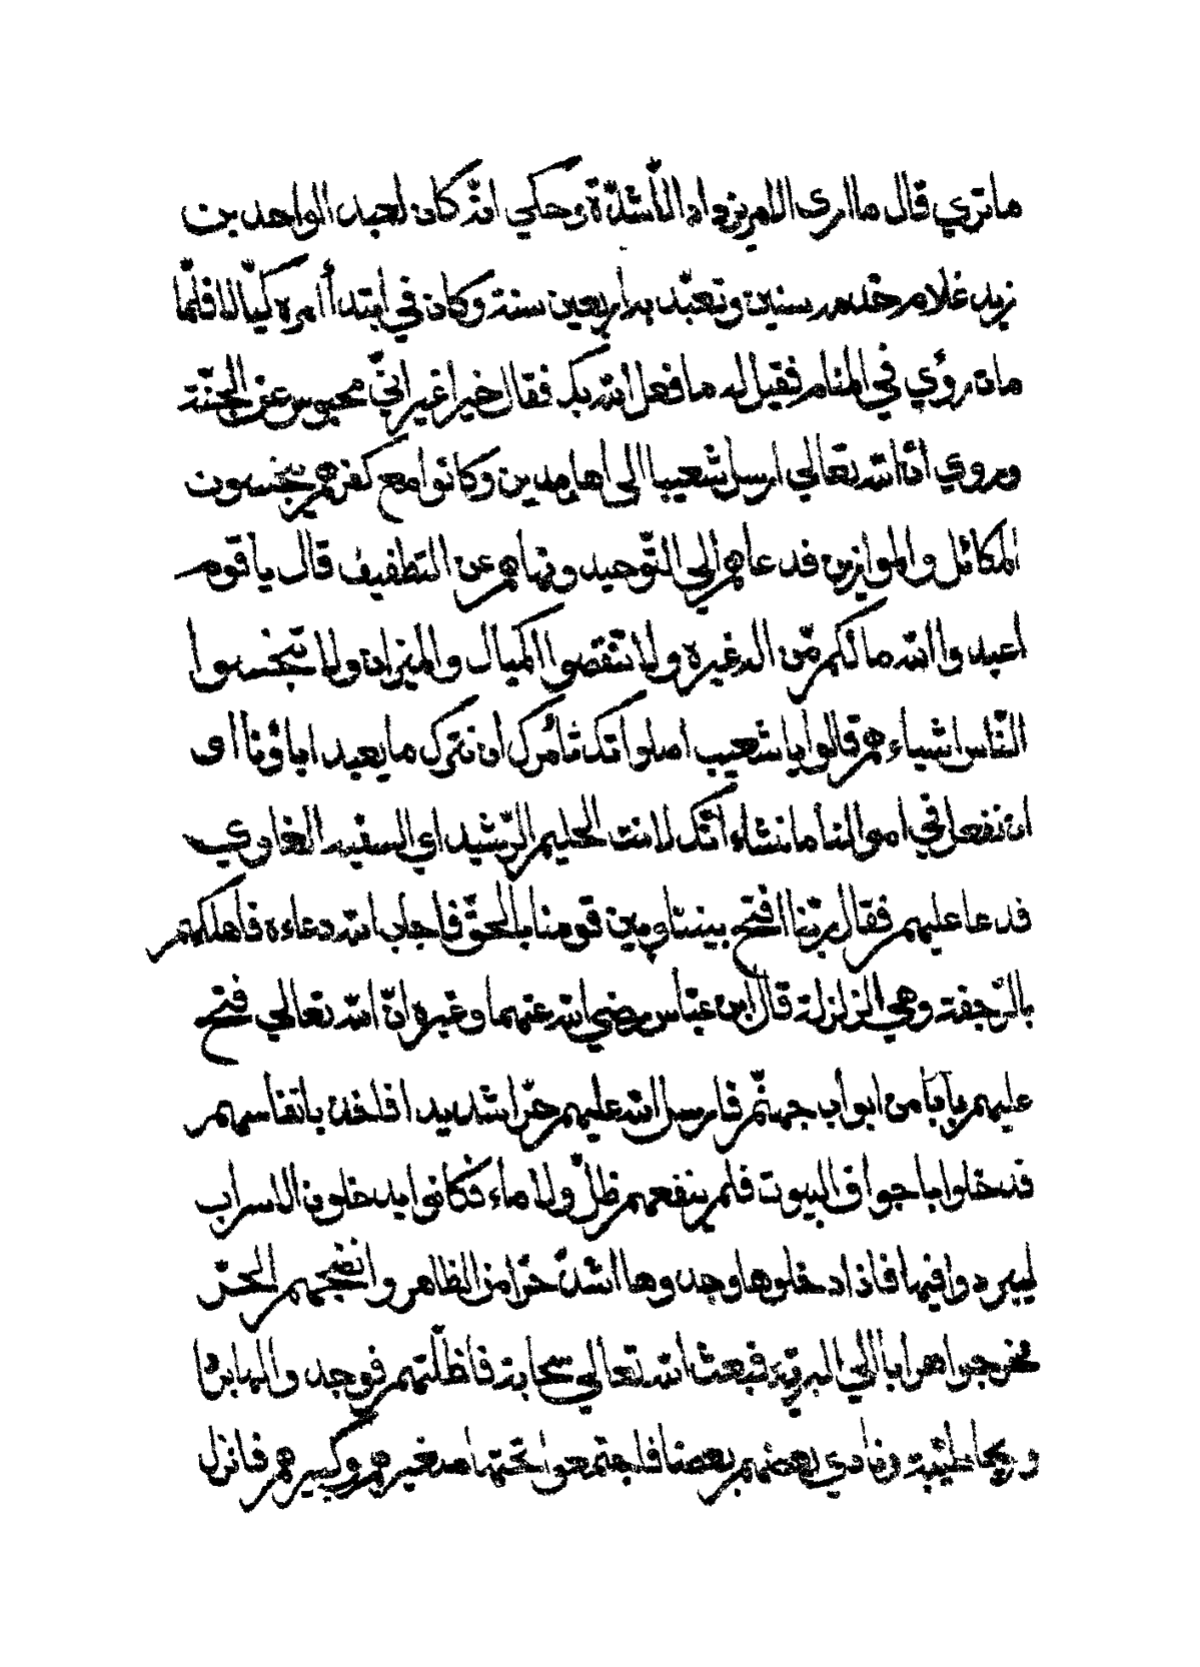 ما تري قال ما اري الامر يزداد الا شدّة وحكي انّه كان لعبد الواحد بن
زيد غلام خدمه سنين وتعبّد به اربعين سنة وكان في ابتداأ امره كيّالا فلمّا
مات رؤي في المنام فقيل له ما فعل الله بك فقال خيرا غير انّي محبوس عن الجنّة
وروي انّ الله تعالي ارسل شعيبا الى اهل مدين وكانوا مع كفرهم يبخسون
المكائل والموازين فدعاهم الي التّوحيد ونهاهم عن التطفيف قال يا قوم
اعبدوا الله ما لكم مّن اله غيره ولا تنقصوا المكيال والميزان ولا تبخسوا
النّاس اشياءهم قالوا يا شعيب اصلواتك تأمرك ان نترك ما يعبد اباؤنا اى
ان نفعل في اموالنا ما نشاء انّك لانت الحليم الرّشيد اي السفيه الغاوي
فدعا عليهم فقال ربّنا افتح بيننا وبين قومنا بالحقّ فاجاب الله دعاءه فاهلكهم
بالرّجفة وهي الزلزلة قال ابن عبّاس رضي الله عنهما وغيره انّ الله تعالي فتح
عليهم بابا من ابواب جهنّم فارسل الله عليهم حرّا شديدا فاخذ بانفاسهم
فدخلوا باجواف البيوت فلم ينفعهم ظلّ ولا ماء فكانوا يدخلون الاسراب
ليبردوا فيها فاذا دخلوها وجدوها اشدّ حرّا من الظاهر وانضجهم الحرّ
فخرجوا هرابا الي البريّة فبعث الله تعالي سحابة فاظلّتهم فوجدوا لها بردا
وريحا طيّبة ونادي بعضهم بعضا فاجتمعوا تحتها صغيرهم وكبيرهم فانزل